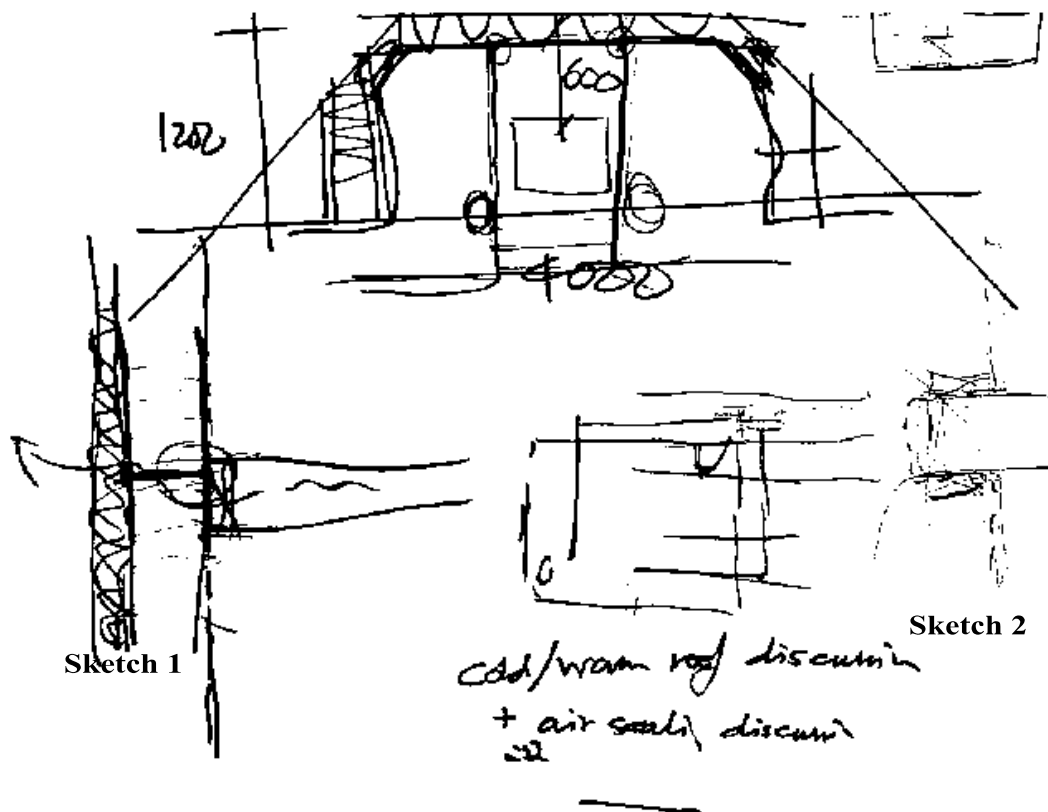 600
1202
4000
Sketch 1
Sketch 2
cold/warm roof discussion
+ air sealing discussion